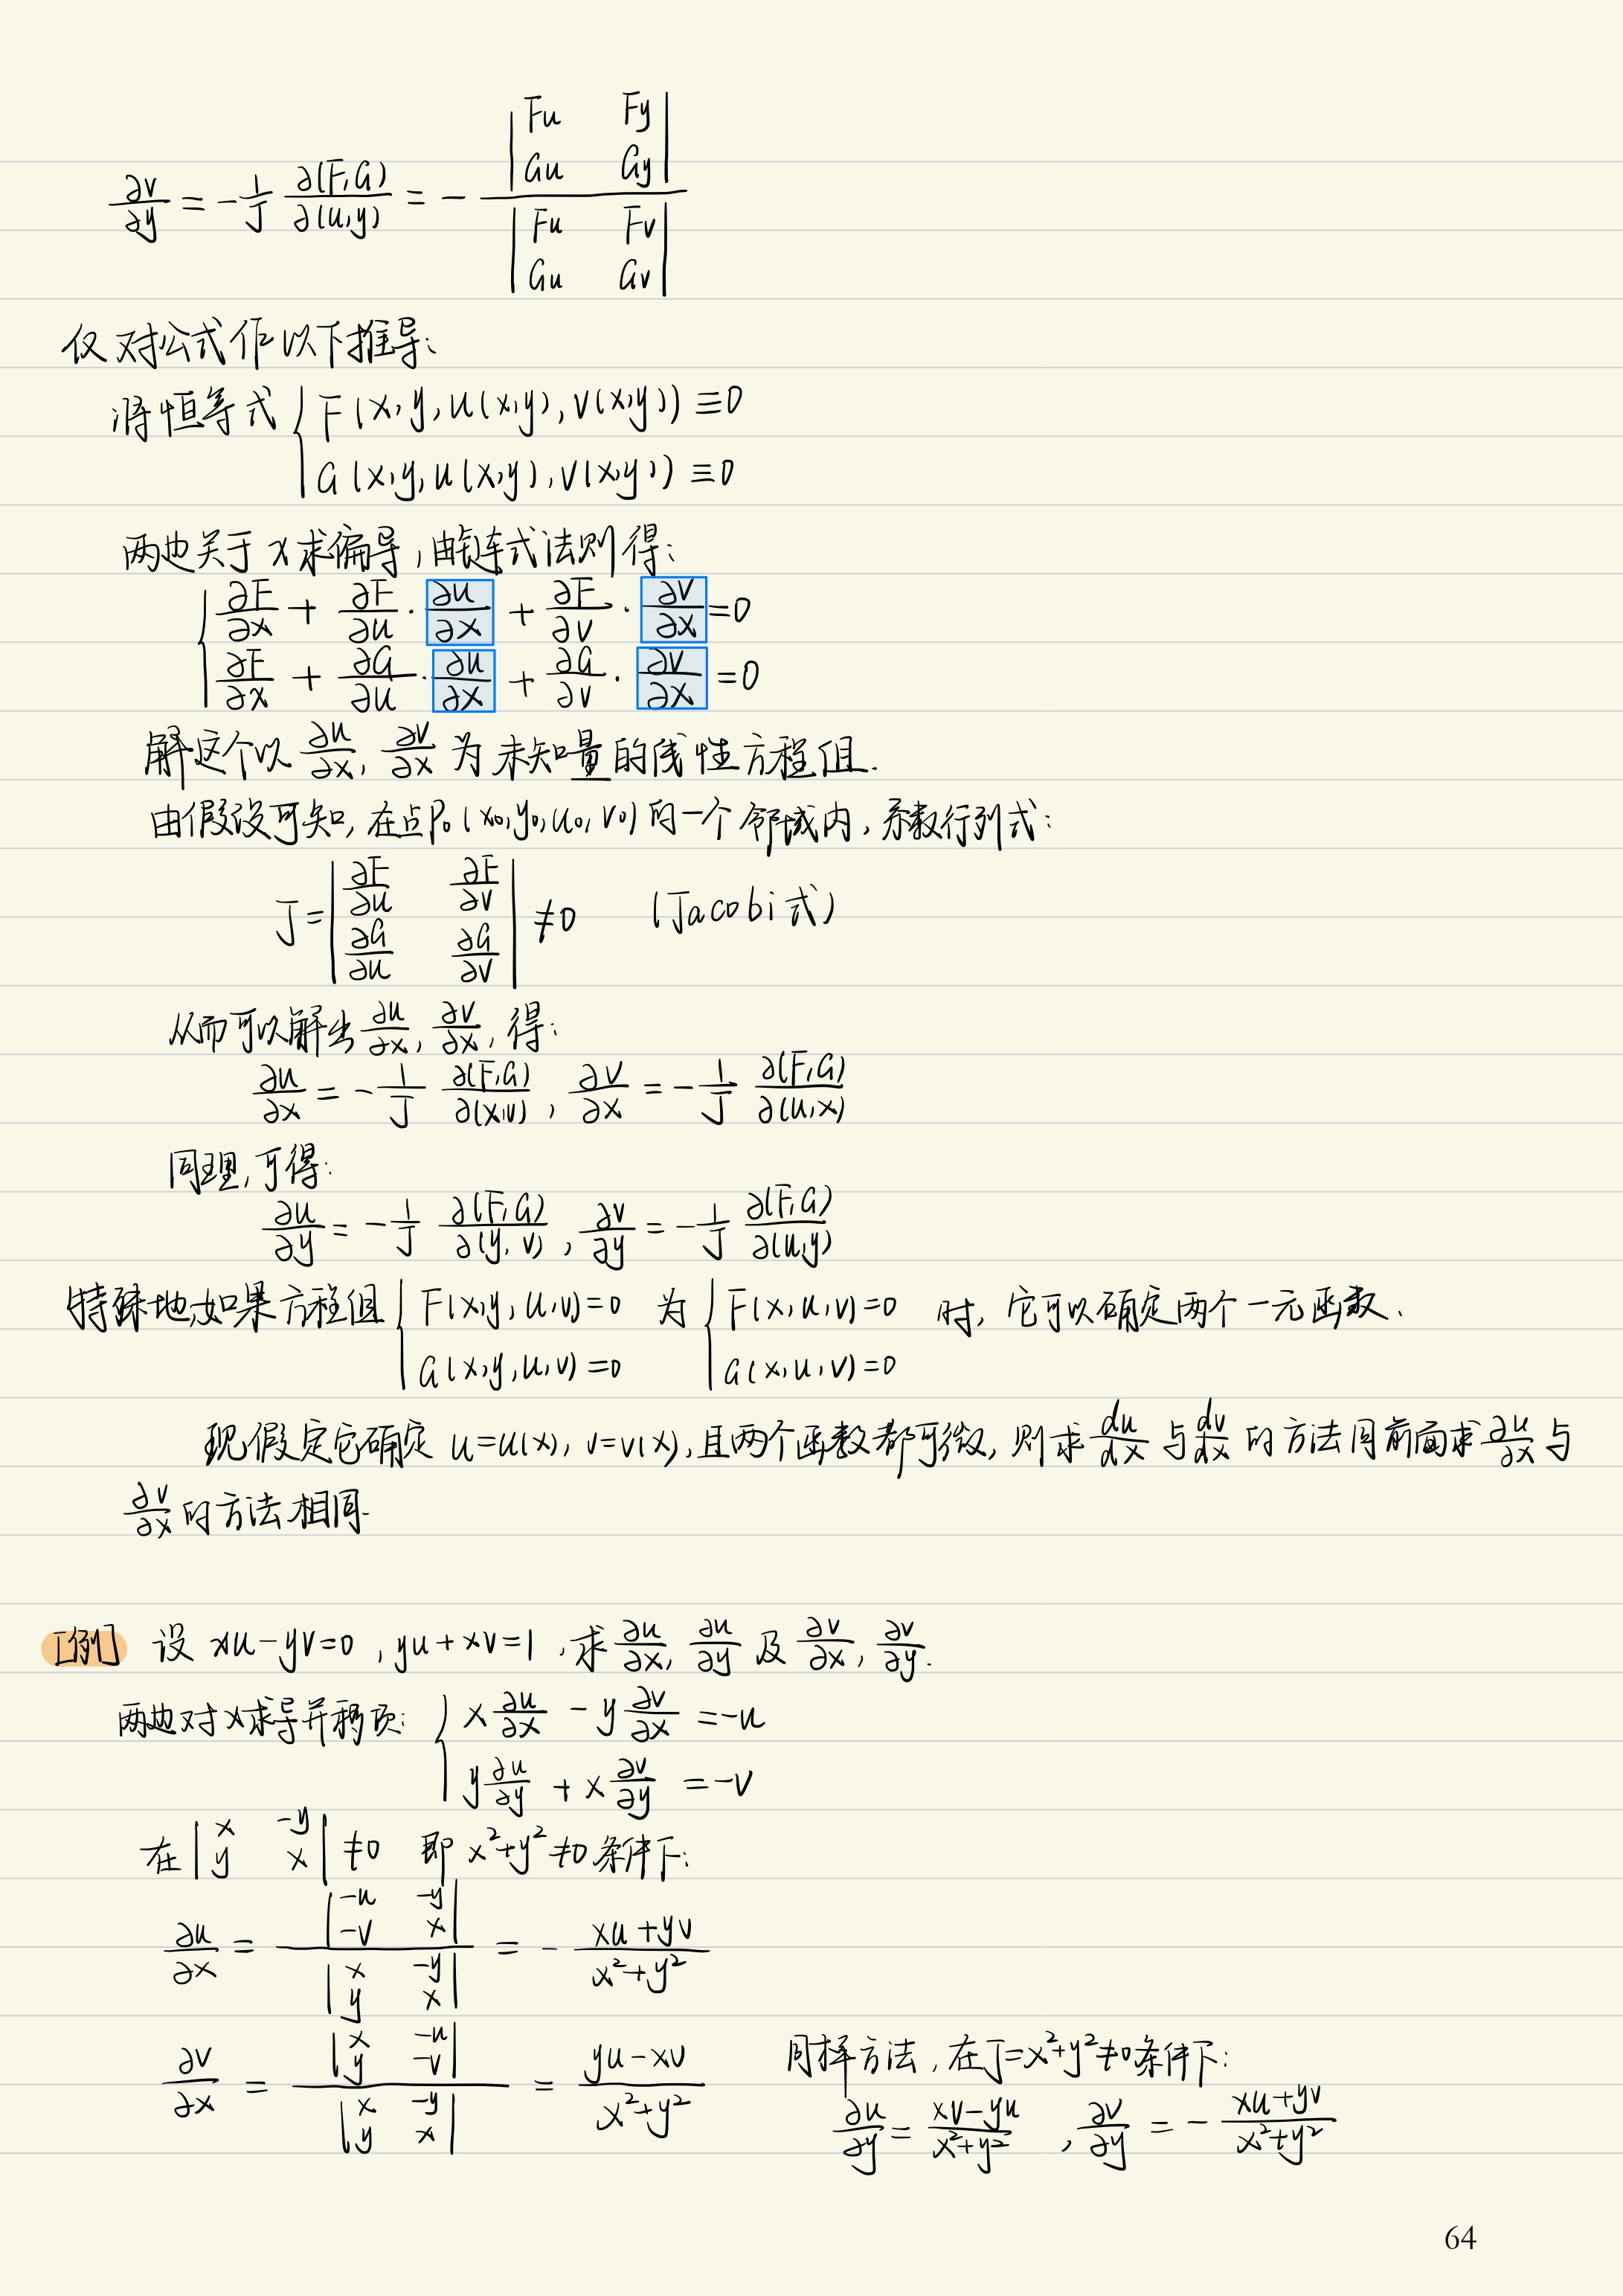 ∂v/∂y = -1/J ∂(F,G)/∂(u,y) = - |Fu Fy; Gu Gy| / |Fu Fv; Gu Gv|
仅对公式作以下推导:
将恒等式 { F(x,y,u(x,y),v(x,y)) ≡0
G(x,y,u(x,y),v(x,y)) ≡0
两边关于x求偏导,由链式法则得:
{ ∂F/∂x + ∂F/∂u · ∂u/∂x + ∂F/∂v · ∂v/∂x =0
∂F/∂x + ∂G/∂u · ∂u/∂x + ∂G/∂v · ∂v/∂x =0
解这个以 ∂u/∂x, ∂v/∂x 为未知量的线性方程组.
由假设可知,在点P₀(x₀,y₀,u₀,v₀)的一个邻域内,系数行列式:
J = |∂F/∂u ∂F/∂v; ∂G/∂u ∂G/∂v| ≠0 (Jacobi式)
从而可以解出 ∂u/∂x, ∂v/∂x, 得:
∂u/∂x = -1/J ∂(F,G)/∂(x,v), ∂v/∂x = -1/J ∂(F,G)/∂(u,x)
同理,可得:
∂u/∂y = -1/J ∂(F,G)/∂(y,v), ∂v/∂y = -1/J ∂(F,G)/∂(u,y)
特殊地,如果方程组 { F(x,y,u,v)=0 为 { F(x,u,v)=0 时, 它可以确定两个一元函数.
G(x,y,u,v)=0 G(x,u,v)=0
现假定它确定 u=u(x), v=v(x),且两个函数都可微,则求 du/dx 与 dv/dx 的方法同前面求 ∂u/∂x 与
∂v/∂x 的方法相同.
[例] 设 xu-yv=0, yu+xv=1, 求 ∂u/∂x, ∂u/∂y 及 ∂v/∂x, ∂v/∂y.
两边对x求导并移项: { x ∂u/∂x - y ∂v/∂x =-u
y ∂u/∂y + x ∂v/∂y =-v
在 |x -y; y x| ≠0 即 x²+y²≠0 条件下:
∂u/∂x = |-u -y; -v x| / |x -y; y x| = - (xu+yv)/(x²+y²)
∂v/∂x = |x -u; y -v| / |x -y; y x| = (yu-xv)/(x²+y²)
同样方法,在J=x²+y²≠0条件下:
∂u/∂y = (xv-yu)/(x²+y²), ∂v/∂y = - (xu+yv)/(x²+y²)
64